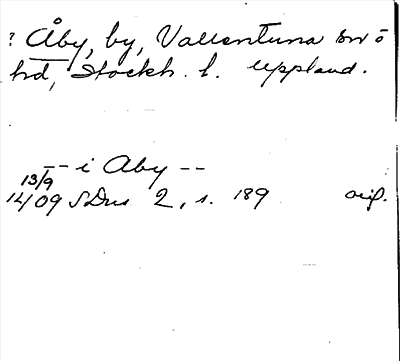 ? Åby, by, Vallentuna sn o
hd, Stockh. l. Uppland.
-- i Aby --
13/9
1409 SDns 2, s. 189 orig.